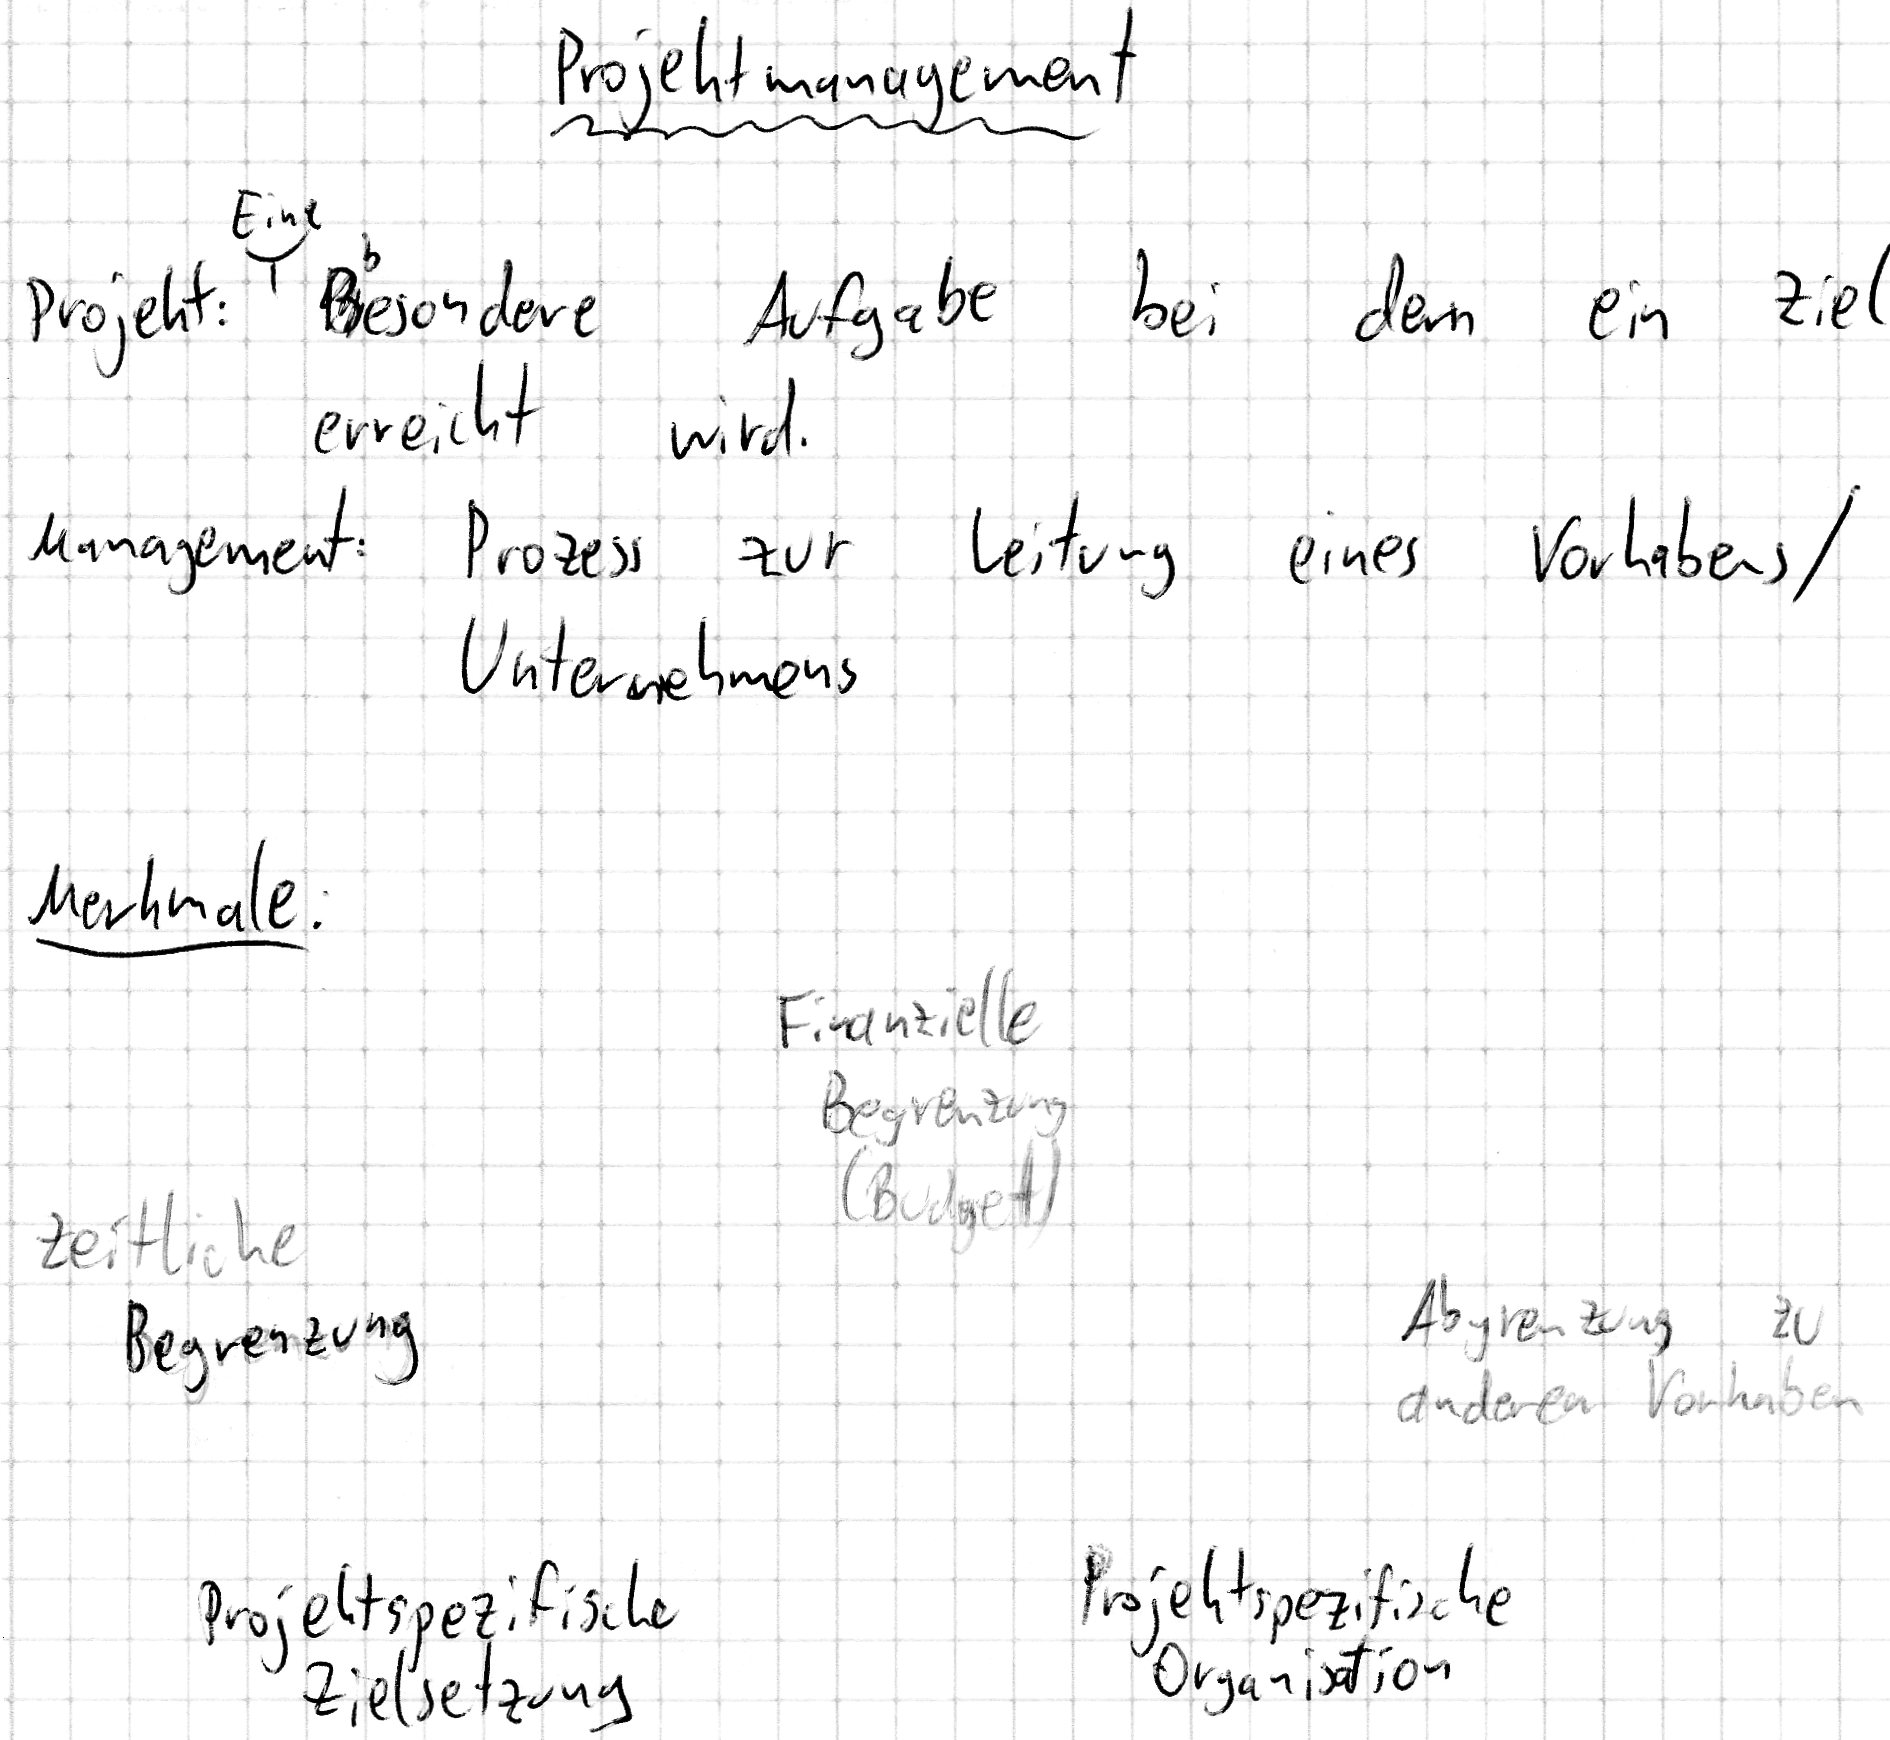 Projektmanagement
Projekt: Eine besondere Aufgabe bei dem ein Ziel
erreicht wird.
Management: Prozess zur Leitung eines Vorhabens/
Unternehmens
Merkmale:
Finanzielle
Begrenzung
(Budget)
Zeitliche
Begrenzung
Abgrenzung zu
anderen Vorhaben
Projektspezifische
Zielsetzung
Projektspezifische
Organisation